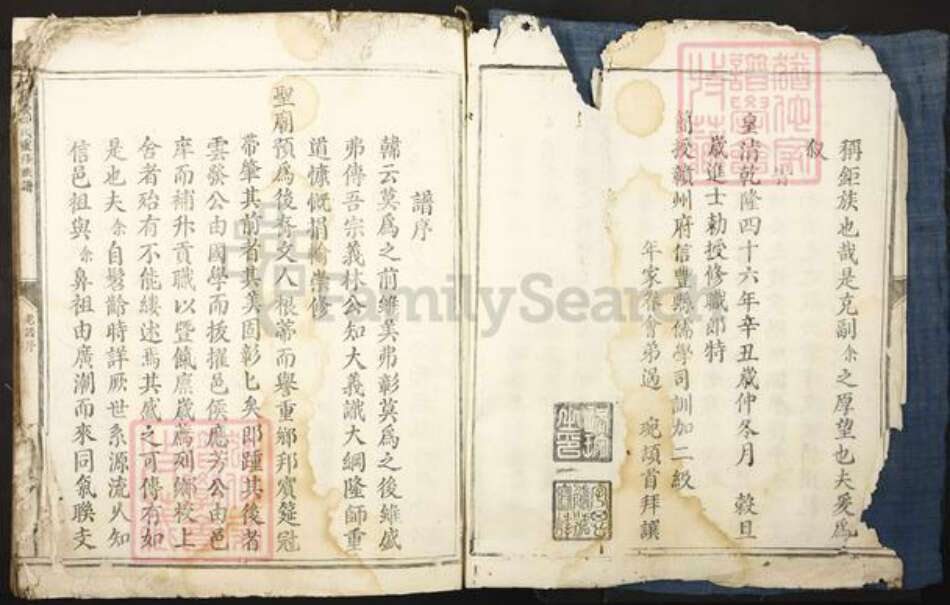 稱鉅族也哉是克副余之厚望也夫爰爲
叙
皇清乾隆四十六年辛丑歲仲冬月 穀旦
歲進士勅授修職郎特
簡授贛州府信豐縣儒學司訓加二級
年家眷會弟過 琬頓首拜譔
譜序
韓云莫爲之前雖美弗彰莫爲之後雖盛
弗傳吾宗義林公知大義識大綱隆師重
道慷慨捐輸崇修
聖廟預爲後裔文人根蒂而譽重鄉邦賓筵冠
帶肇其前者其美固彰匕矣即踵其後者
雲發公由國學而拔擢邑侯應芳公由邑
庠而補升貢職以暨餼廩歲薦列鄉校上
舍者殆有不能縷述焉其盛之可傳有如
是也夫余自髫齡時詳厥世系源流乆知
信邑祖與余鼻祖由廣潮而來同氣聯支
重修族譜
老譜序
FamilySearch